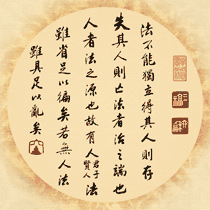 法不能獨立得其人則存
失其人則亡法者治之端也
人者法之源也故有人君子賢人法
雖省足以徧矣若無人法
雖具足以亂矣